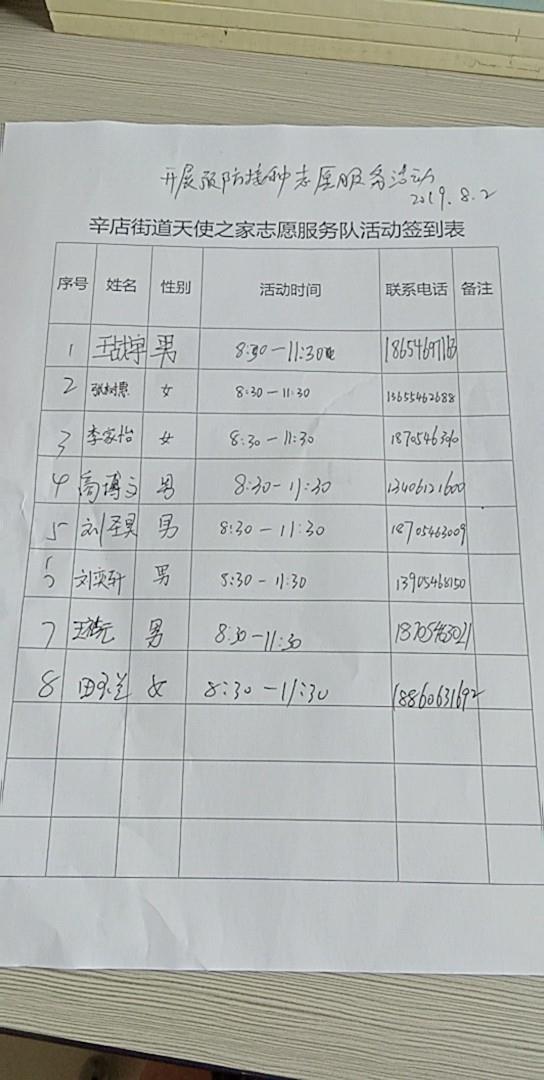 开展预防接种志愿服务活动
2019.8.2
辛店街道天使之家志愿服务队活动签到表
序号 姓名 性别 活动时间 联系电话 备注
1 男 8:30-11:30
2 张树惠 女 8:30-11:30 13655462688
3 李家怡 女 8:30-11:30
4 高博文 男 8:30-11:30 13406121600
5 刘圣昊 男 8:30-11:30 18705463009
6 刘奕轩 男 8:30-11:30 13905468150
7 男 8:30-11:30 18705463021
8 田 女 8:30-11:30 18860631692